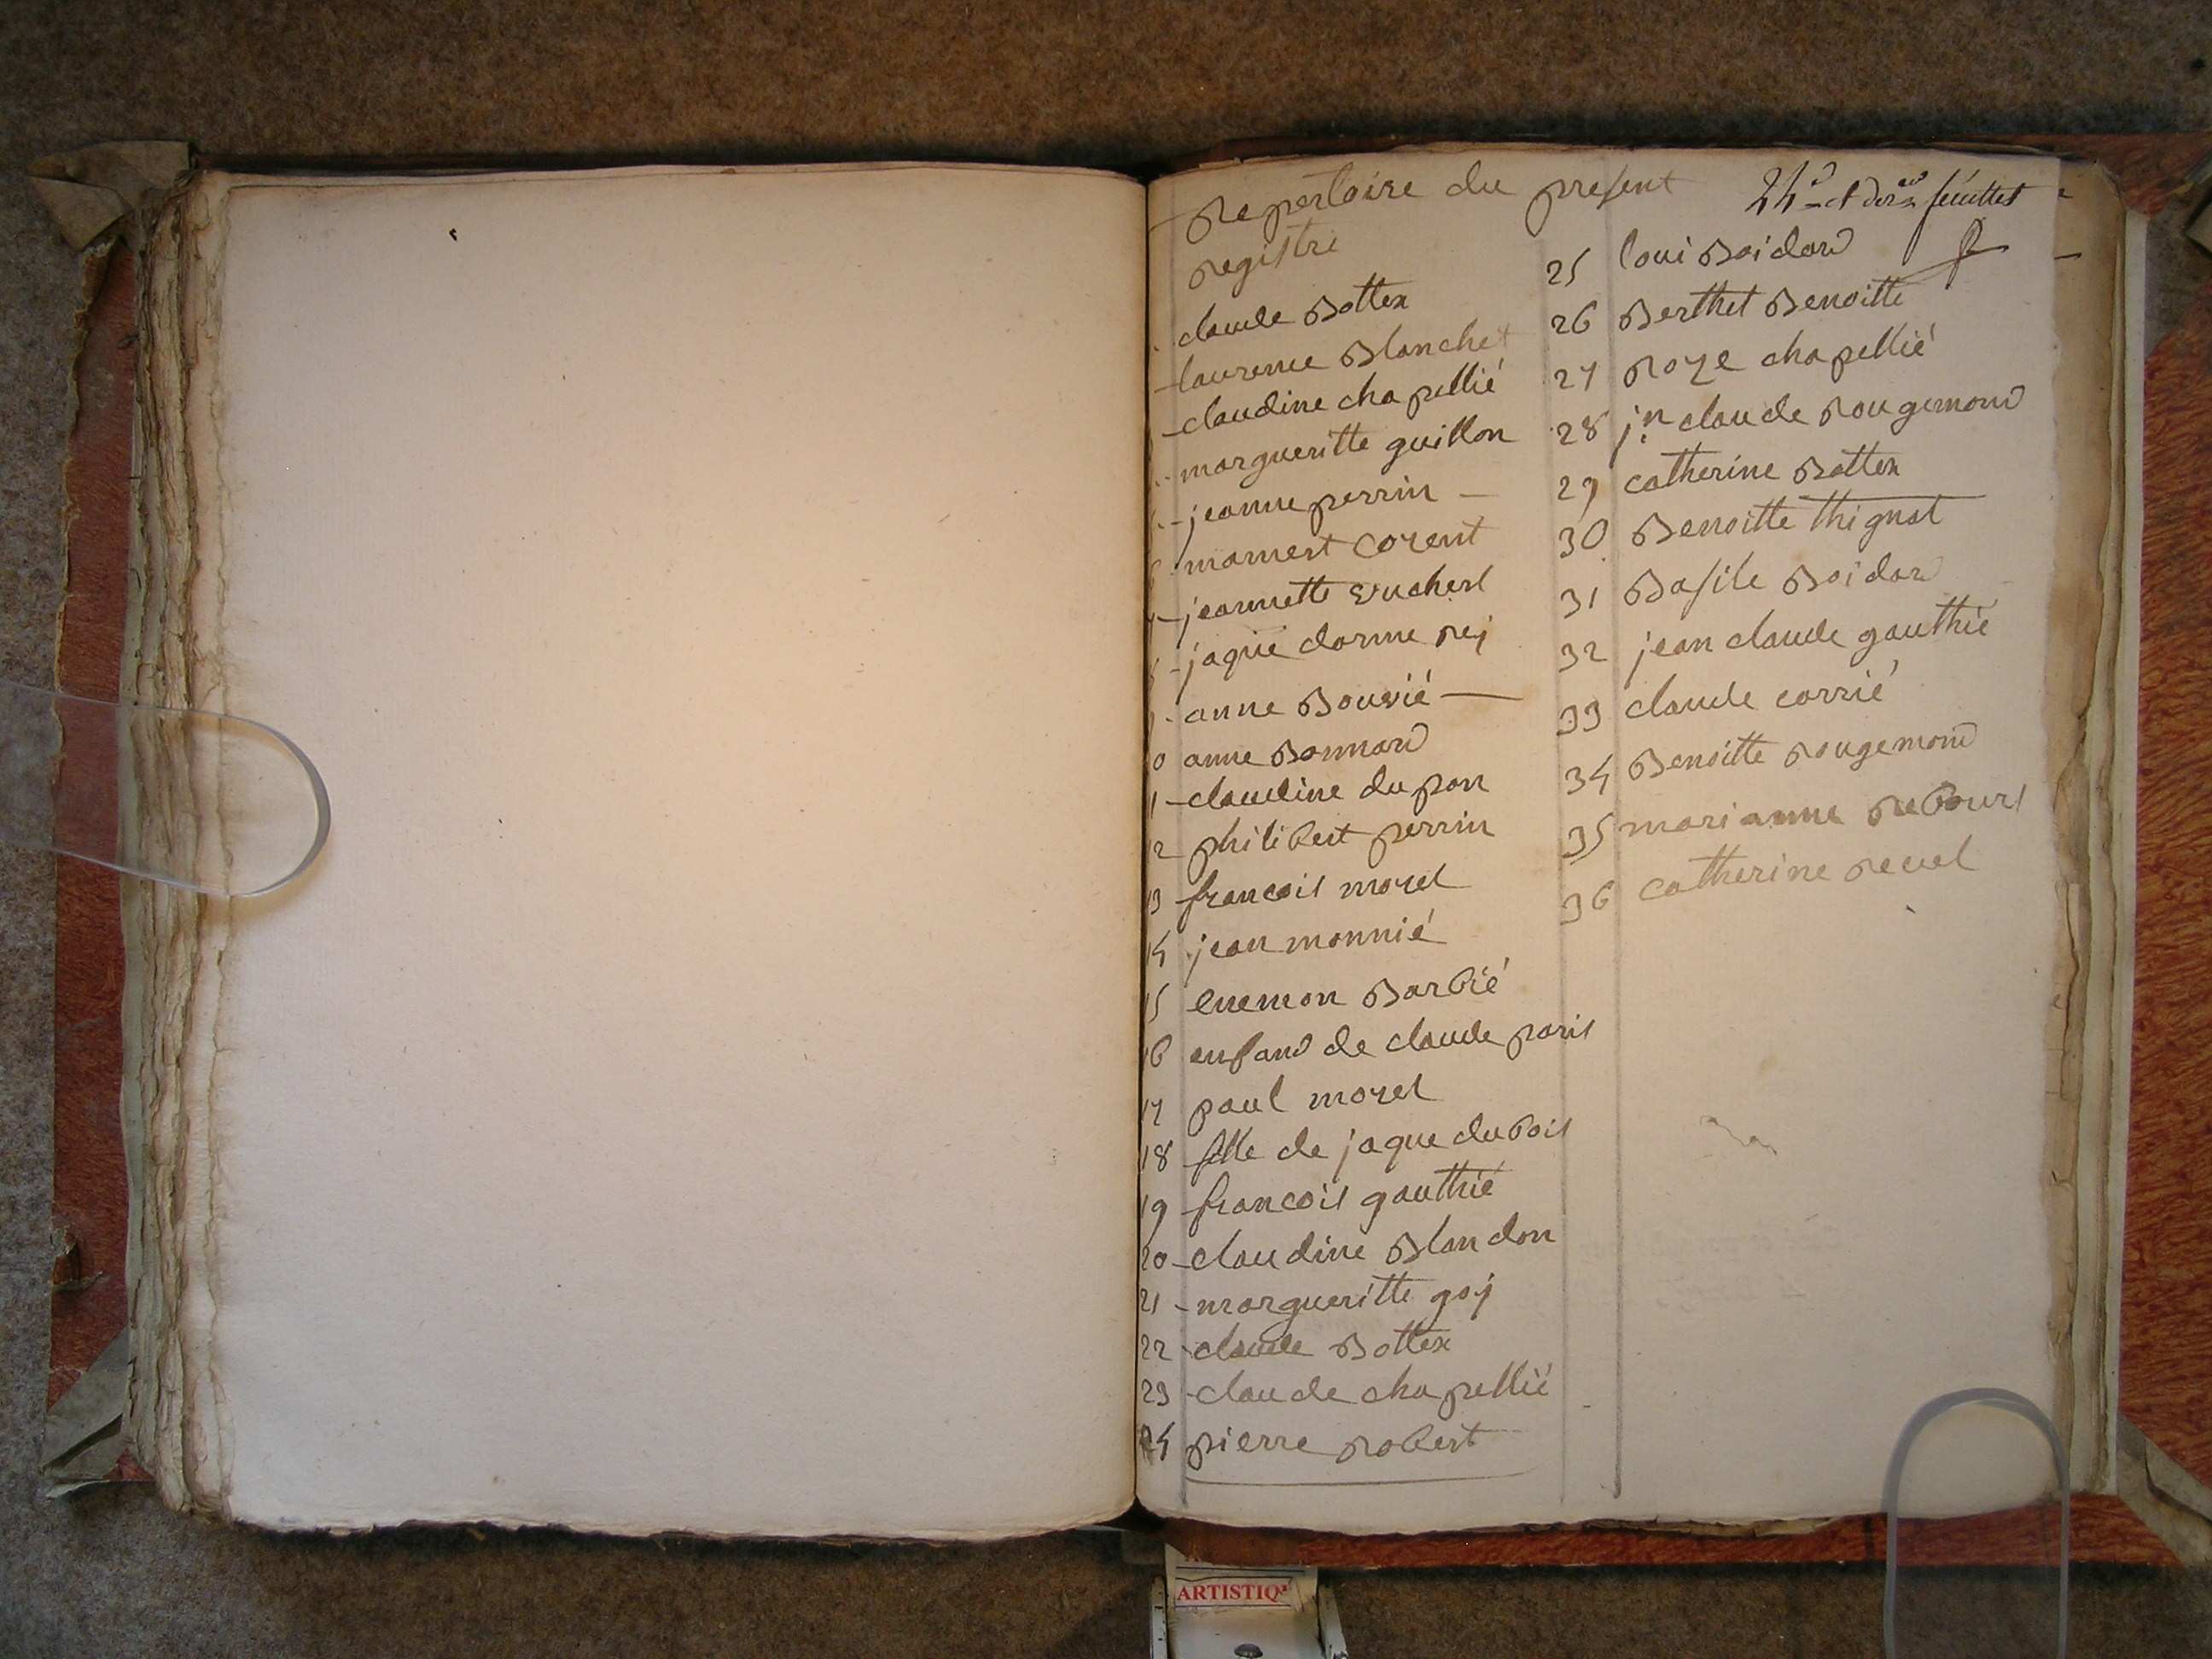 Repertoire du present
registre
24e et dere feuillet
claude Bottex
laurence Blanchet
claudine chapellié
margueritte guillon
jeanne perrin —
mamert Corent
7 jeannette Vuchert
8 jaque darme rey
9 anne Bouvié —
10 anne Bonnard
11 claudine dupon
12 philibert perrin
13 francois morel
14 jean monnié
15 enemon Barbié
16 enfand de claude paris
17 paul morel
18 fille de jaque dubois
19 francois gauthié
20 claudine Blandon
21 margueritte goy
22 claude Bottex
23 claude chapellié
24 pierre robert
25 loui Boidard
26 Berthet Benoitte
27 Roze chapellié
28 jn claude Rougemond
29 catherine Bottex
30 Benoitte thignat
31 Basile Boidard
32 jean claude gauthié
33 claude carrié
34 Benoitte Rougemond
35 marianne Rebours
36 catherine revel
ARTISTIQ